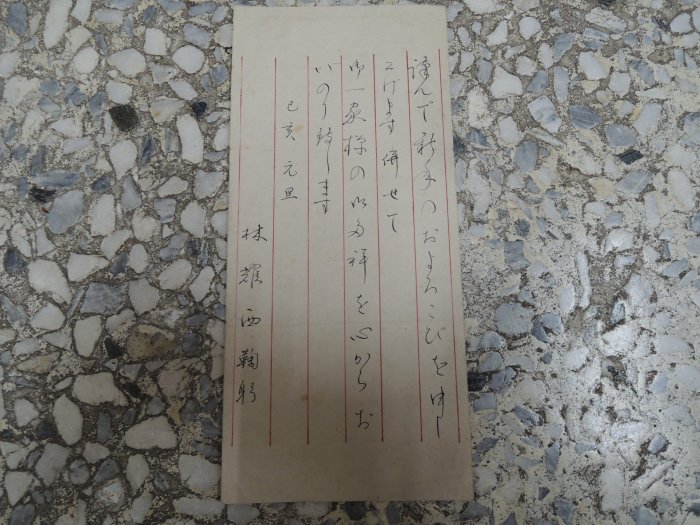 謹んで新年のおよろこびを申し
上げます 併せて
御一家様の御多祥を心からお
いのり致します
己亥 元旦
林耀西鞠躬